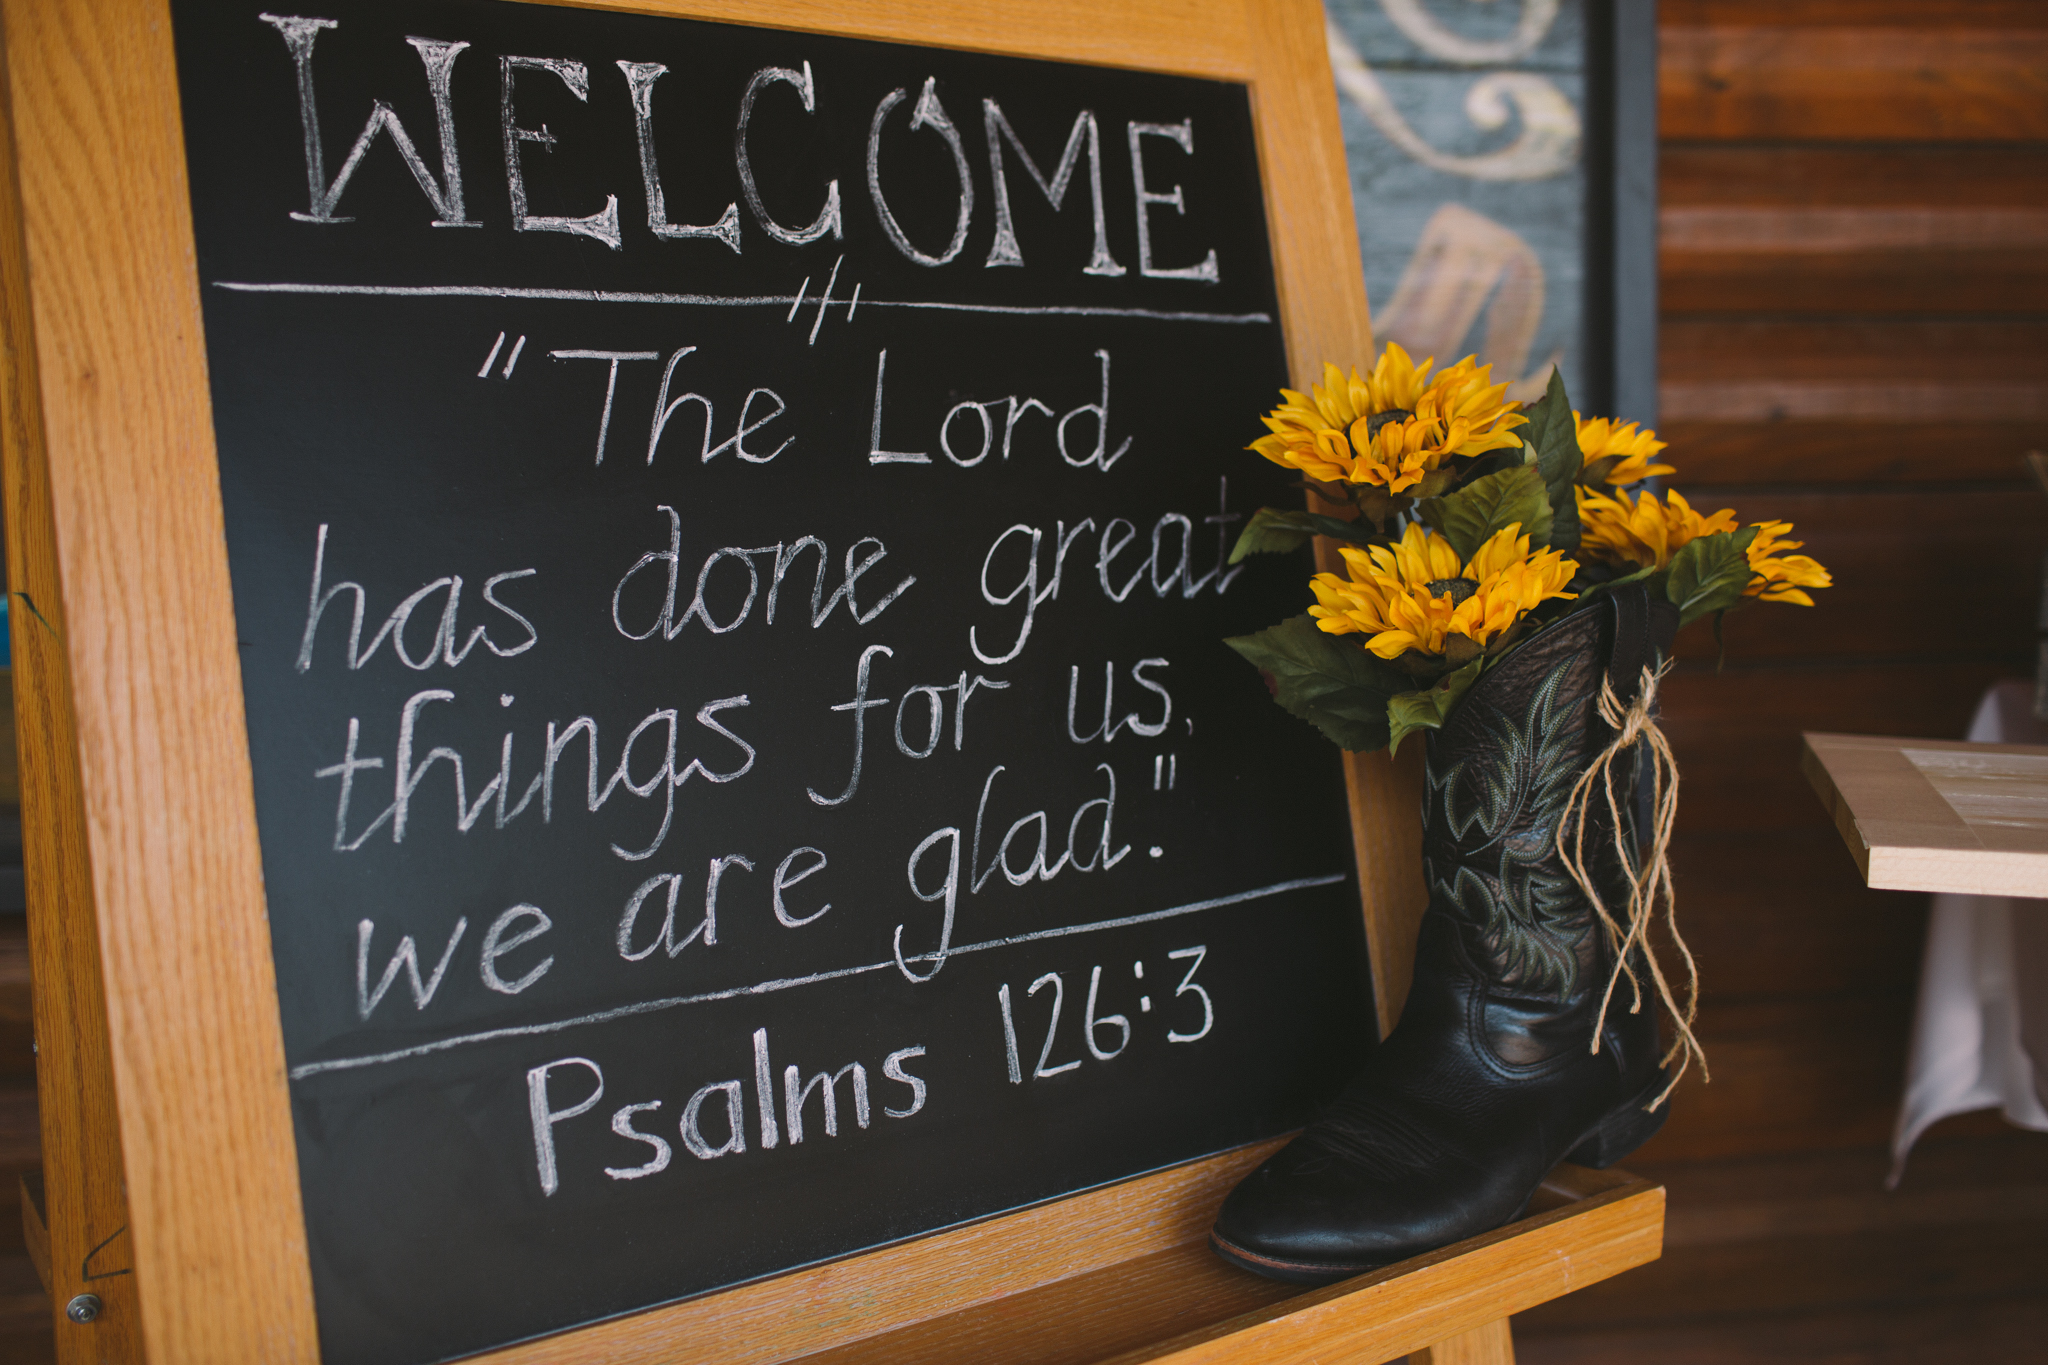 WELCOME
"The Lord
has done great
things for us,
we are glad."
Psalms 126:3